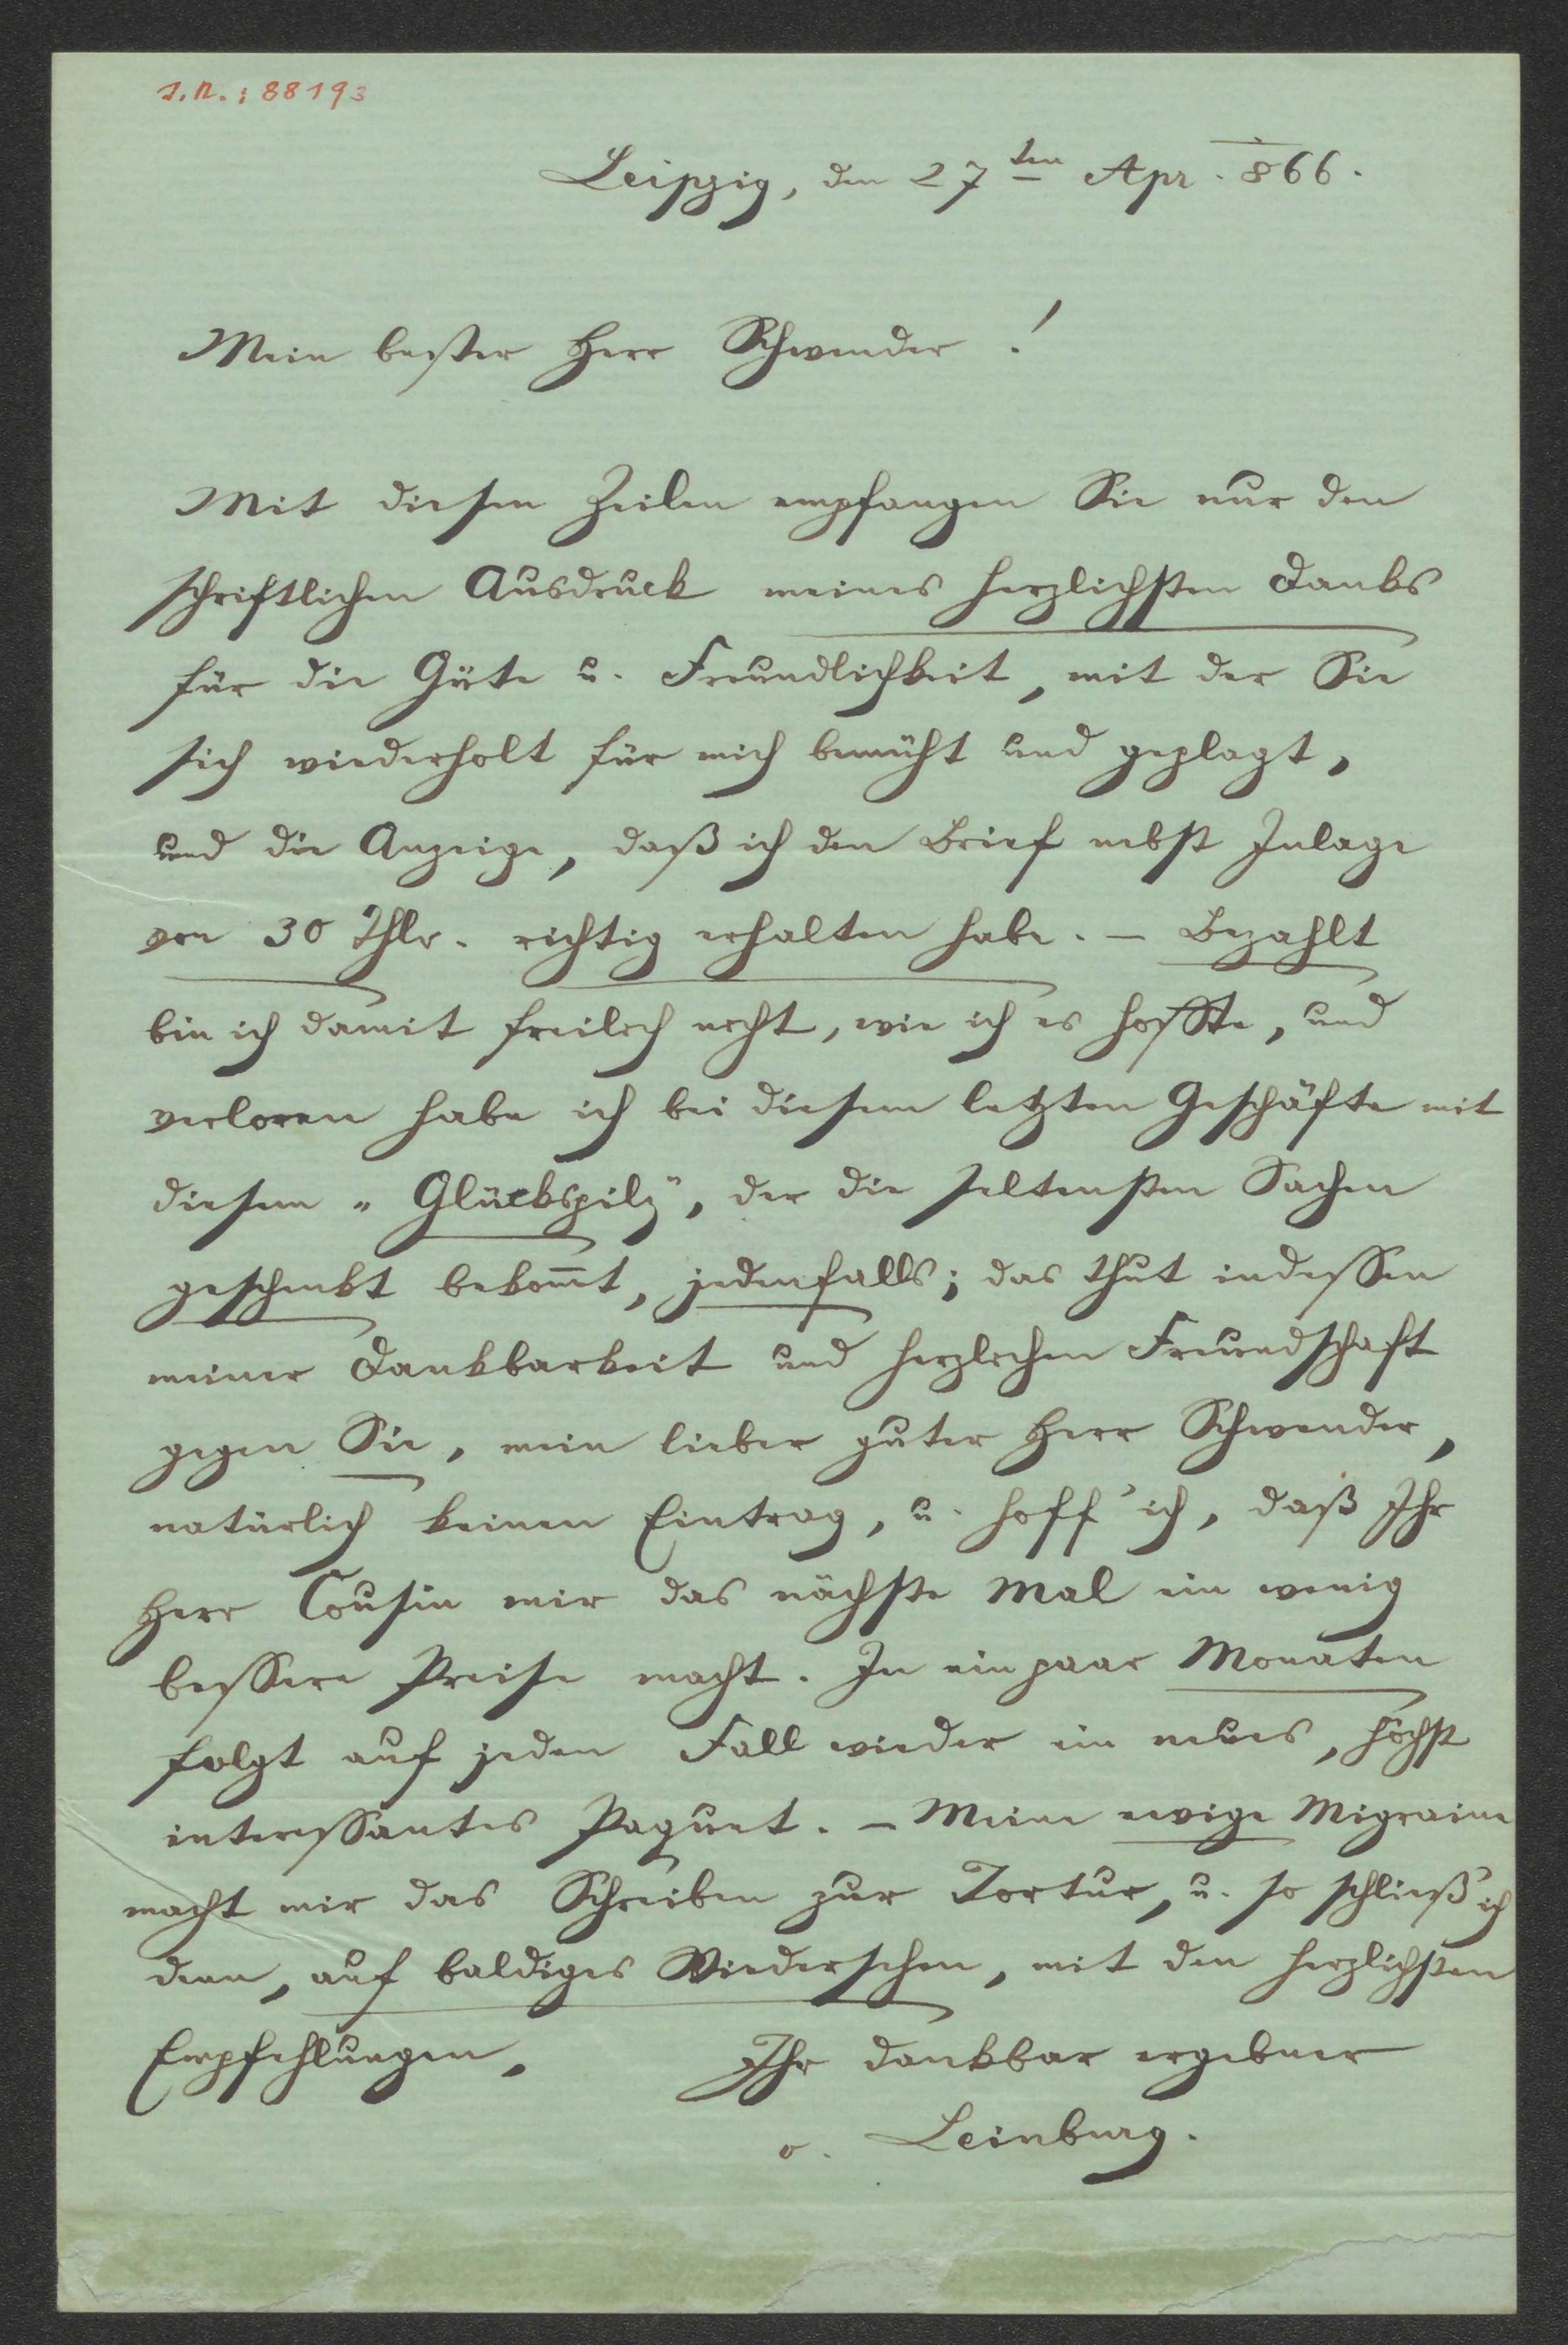 I.N.: 88193
Leipzig, den 27ten Apr. 866.
Mein bester Herr Schwender!
Mit diesen Zeilen empfangen Sie nur den
schriftlichen Ausdruck meines herzlichsten Danks
für die Güte u. Freundlichkeit, mit der Sie
sich wiederholt für mich bemüht und geplagt,
und die Anzeige, daß ich den Brief nebst Inlage
von 30 Thlr. richtig erhalten habe. – Bezahlt
bin ich damit freilich nicht, wie ich es hoffte, und
verloren habe ich bei diesem letzten Geschäfte mit
diesem „Glückspilz“, der die seltensten Sachen
geschenkt bekom̅t, jedenfalls; das thut indessen
meiner Dankbarkeit und herzlichen Freundschaft
gegen Sie, mein lieber guter Herr Schwender,
natürlich keinen Eintrag, u. hoff' ich, daß Ihr
Herr Cousin mir das nächste Mal ein wenig
bessere Preise macht. In ein paar Monaten
folgt auf jeden Fall wieder ein neues, höchst
interessantes Paquet. – Meine ewige Migraine
macht mir das Schreiben zur Tortur, u. so schließ' ich
denn, auf baldiges Wiedersehen, mit den herzlichsten
Empfehlungen,
Ihr dankbar ergebner
v. Leinburg.